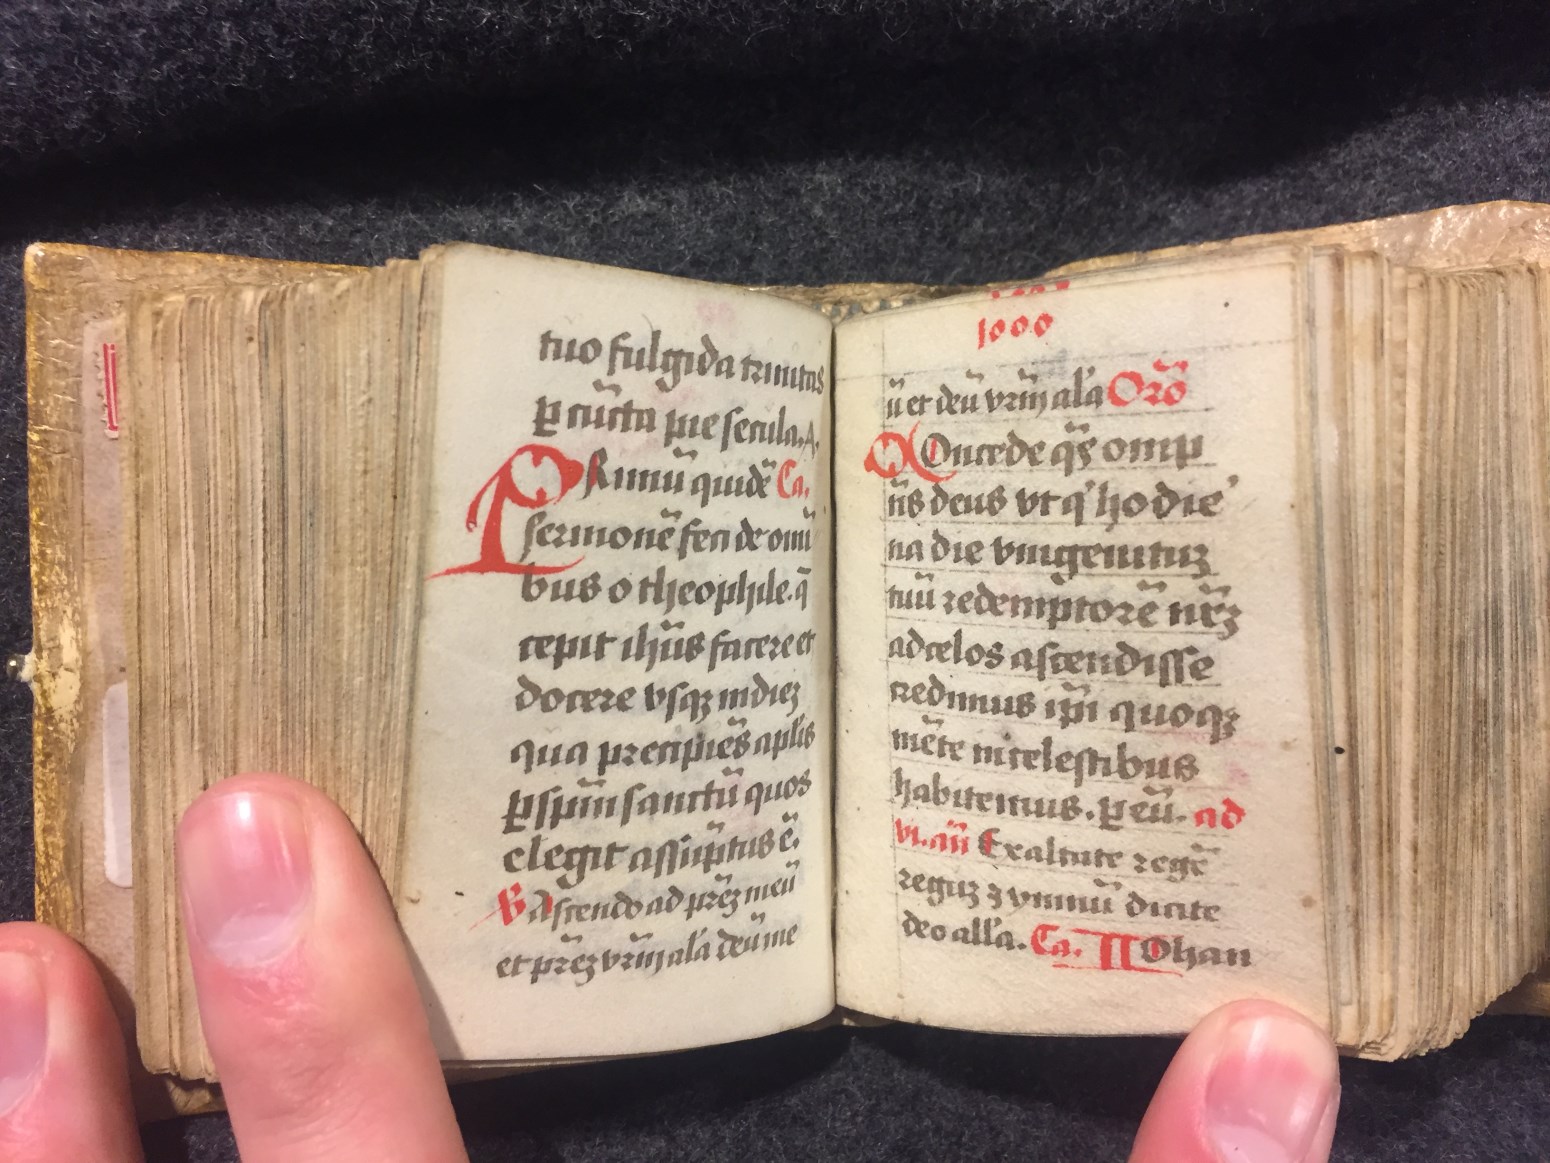 tuo fulgida trinitas
ꝑ cūcta pie secula. A.
PRimū quidē Ca.
sermonē feci de omī
bus o theophile. q̄
cepit ihūs facere et
docere vsqꝫ in dieꝫ
qua precipiēs aplīs
ꝑ spm̄ sanctū quos
elegit assūptus ē.
℟ Ascendo ad prēꝫ meū
et prēꝫ vrm̄ alā deū me
1000
ū et deū vrm̄ alā Orō
COncede qs̄ omp
n̄s deus vt q' hodie
na die vnigenituꝫ
tuū redemptorē nrꝫ̄
ad celos ascendisse
credimus ip̄i quoqꝫ
mēte in celestibus
habitemus. ꝑ eū. ad
vi. an̄ Exaltate regē
reguꝫ ⁊ ymnū dicite
deo alla. Ca. IIOhan